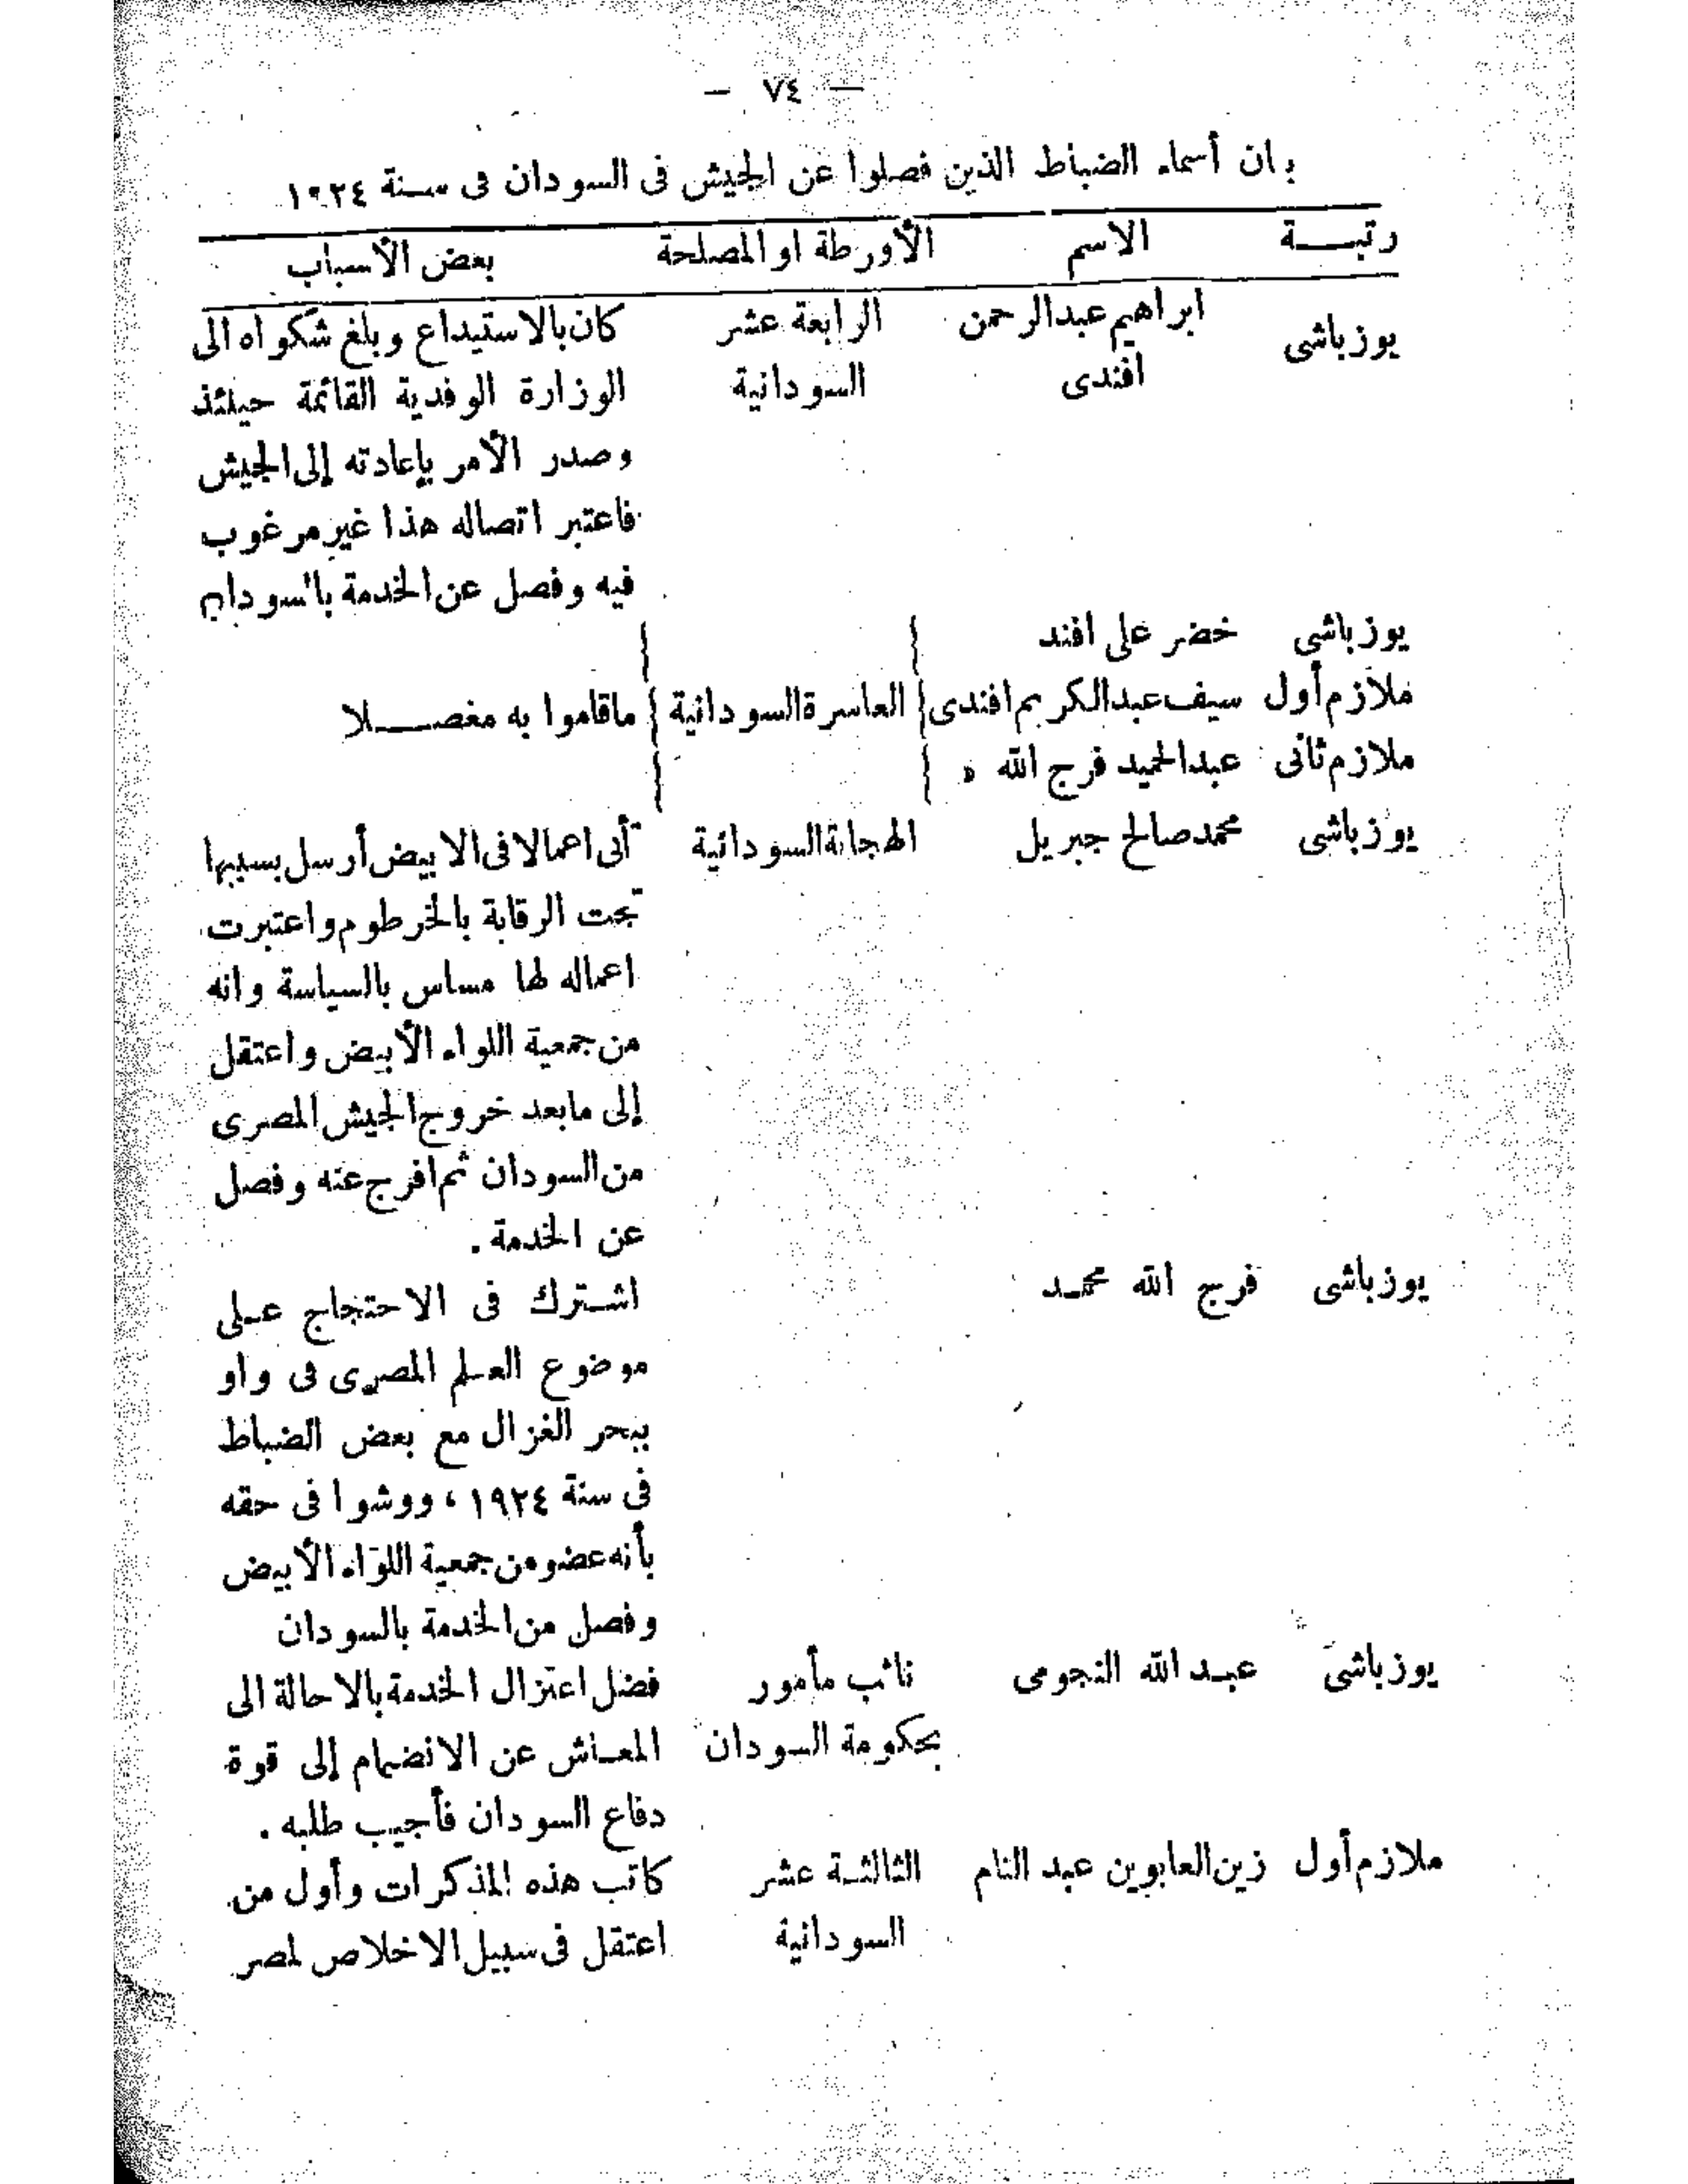 — ٧٤ —
بيان أسماء الضباط الذين فصلوا عن الجيش فى السودان فى سنة ١٩٢٤
رتبة الاسم الأورطة او المصلحة بعض الأسباب
يوزباشى ابراهيم عبدالرحمن الرابعة عشر كان بالاستيداع وبلغ شكواه الى
افندى السودانية الوزارة الوفدية القائمة حينئذ
وصدر الأمر بإعادته إلى الجيش
فاعتبر اتصاله هذا غير مرغوب
فيه وفصل عن الخدمة بالسودان
يوزباشى خضر على افند
ملازم أول سيف عبدالكريم افندى العاسرة السودانية ماقاموا به مفصلا
ملازم ثانى عبدالحميد فرج الله »
يوزباشى محمد صالح جبريل الهجانة السودانية أتى اعمالا فى الابيض أرسل بسببها
تحت الرقابة بالخرطوم واعتبرت
اعماله لها مساس بالسياسة وانه
من جمعية اللواء الأبيض واعتقل
إلى مابعد خروج الجيش المصرى
من السودان ثم افرج عنه وفصل
عن الخدمة .
يوزباشى فرج الله محمد اشترك فى الاحتجاج على
موضوع العلم المصرى فى واو
ببحر الغزال مع بعض الضباط
فى سنة ١٩٢٤ ، ووشوا فى حقه
بأنه عضو من جمعية اللواء الأبيض
وفصل من الخدمة بالسودان
يوزباشى عبد الله النجومى نائب مأمور فضل اعتزال الخدمة بالاحالة الى
بحكومة السودان المعاش عن الانضمام إلى قوة
دفاع السودان فأجيب طلبه .
ملازم أول زين العابوين عبد التام الثالثة عشر كاتب هذه المذكرات وأول من
السودانية اعتقل فى سبيل الاخلاص لمصر